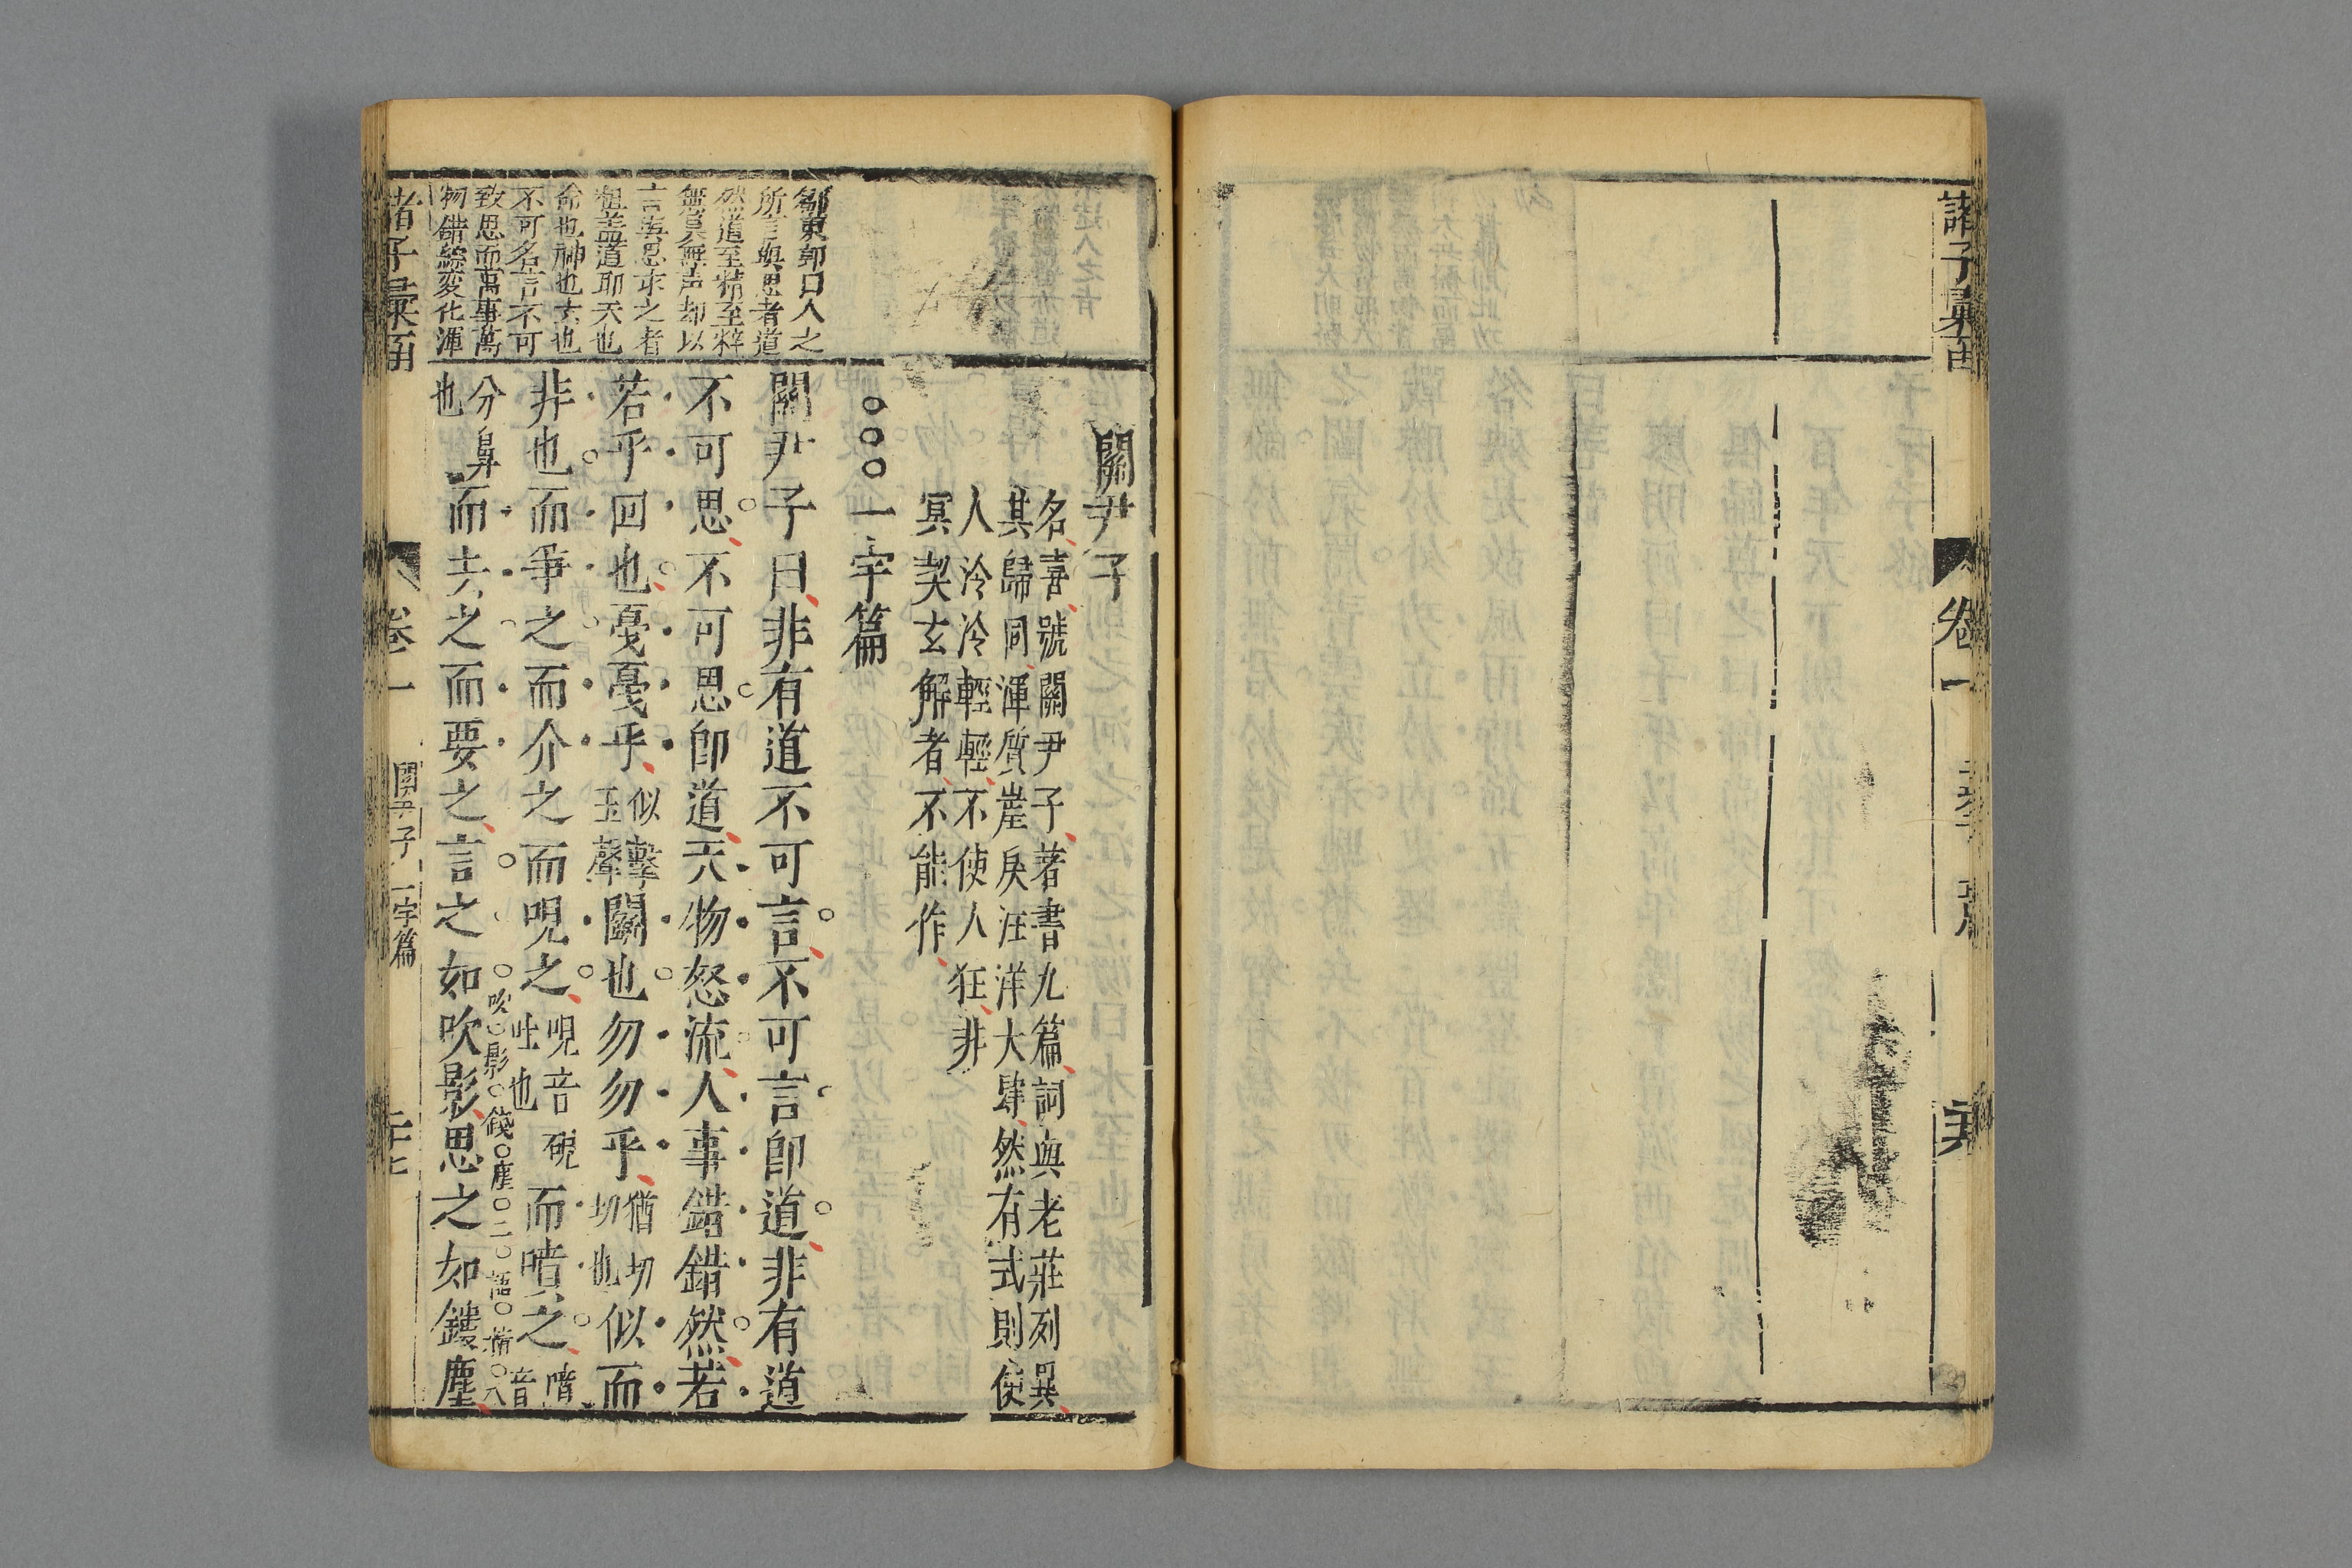 諸子彙函
卷一
關尹子
名喜號關尹子著書九篇詞與老莊列異
其歸同渾質崖戾汪洋大肆然有式則使
人泠泠輕輕不使人狂非
冥契玄解者不能作
一宇篇
鄒東郭曰人之
所言與思者道
然道至精至粹
無臭無声却以
言與思求之者
粗盖道耶天也
命也神也玄也
不可名言不可
致思而萬事萬
物錯綜変化渾
關尹子曰非有道不可言不可言卽道非有道
不可思不可思卽道天物怒流人事錯錯然若
若乎回也戞戞乎似擊玉聲鬬也勿勿乎猶切切也似而
非也而爭之而介之而哯之哯音硯吐也而嘖之嘖音
分鼻也而去之而要之言之如吹影思之如鏤塵
吹影錢塵二語精
諸子彙函
卷一
關尹子
一宇篇
二十七